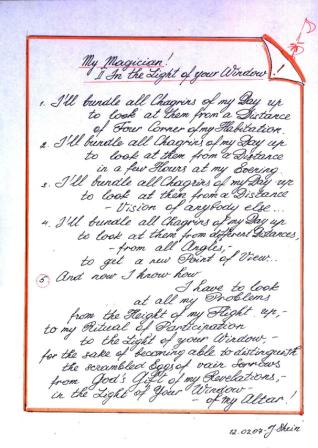 My Magician!
II In the Light of your Window
!
1. I'll bundle all Chagrins of my Day up
to look at them from a Distance
of Four Corner of my Habitation.
2. I'll bundle all Chagrins of my Day up
to look at them from a Distance
in a few Hours at my Evening.
3. I'll bundle all Chagrins of my Day up
to look at them from a Distance
- Vision of anybody else...
4. I'll bundle all Chagrins of my Day up
to look at them from different Distances,
- from all Angles, -
to get a new Point of View...
5 And now I know how
I have to look
at all my Problems
from the Height of my Flight up, -
to my Ritual of Participation
to the Light of your Window, -
for the sake of becoming able to distinguish
the scrambled Eggs of vain Sorrows
from God's Gift of my Revelations, -
in the Light of Your Window -
- of my Altar!
12.0207. J Shein